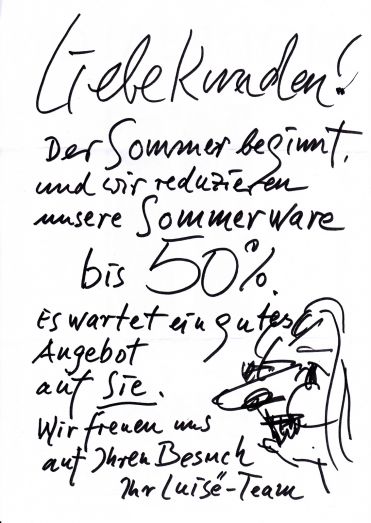 Liebe Kunden!
Der Sommer beginnt,
und wir reduzieren
unsere Sommerware
bis 50%.
Es wartet ein gutes
Angebot
auf Sie.
Wir freuen uns
auf Ihren Besuch
Ihr Luisë-Team